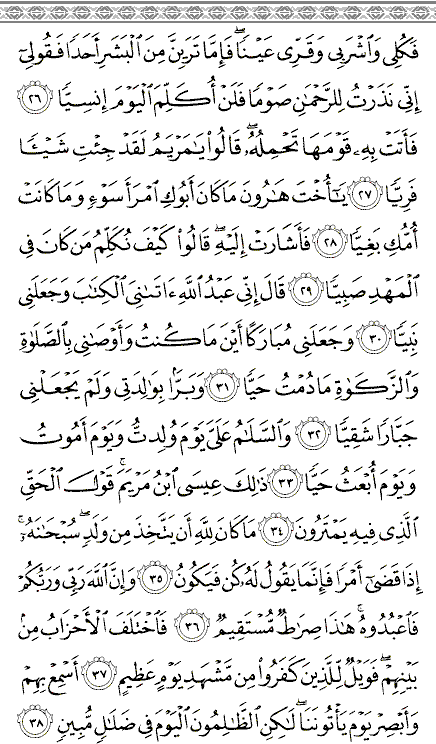 فَكُلِى وَٱشْرَبِى وَقَرِّى عَيْنًا ۖ فَإِمَّا تَرَيِنَّ مِنَ ٱلْبَشَرِ أَحَدًا فَقُولِىٓ
إِنِّى نَذَرْتُ لِلرَّحْمَـٰنِ صَوْمًا فَلَنْ أُكَلِّمَ ٱلْيَوْمَ إِنسِيًّا ٢٦
فَأَتَتْ بِهِۦ قَوْمَهَا تَحْمِلُهُۥ ۖ قَالُوا۟ يَـٰمَرْيَمُ لَقَدْ جِئْتِ شَيْـًٔا
فَرِيًّا ٢٧ يَـٰٓأُخْتَ هَـٰرُونَ مَا كَانَ أَبُوكِ ٱمْرَأَ سَوْءٍ وَمَا كَانَتْ
أُمُّكِ بَغِيًّا ٢٨ فَأَشَارَتْ إِلَيْهِ ۖ قَالُوا۟ كَيْفَ نُكَلِّمُ مَن كَانَ فِى
ٱلْمَهْدِ صَبِيًّا ٢٩ قَالَ إِنِّى عَبْدُ ٱللَّهِ ءَاتَىٰنِىَ ٱلْكِتَـٰبَ وَجَعَلَنِى
نَبِيًّا ٣٠ وَجَعَلَنِى مُبَارَكًا أَيْنَ مَا كُنتُ وَأَوْصَـٰنِى بِٱلصَّلَوٰةِ
وَٱلزَّكَوٰةِ مَا دُمْتُ حَيًّا ٣١ وَبَرًّۢا بِوَٰلِدَتِى وَلَمْ يَجْعَلْنِى
جَبَّارًا شَقِيًّا ٣٢ وَٱلسَّلَـٰمُ عَلَىَّ يَوْمَ وُلِدتُّ وَيَوْمَ أَمُوتُ
وَيَوْمَ أُبْعَثُ حَيًّا ٣٣ ذَٰلِكَ عِيسَى ٱبْنُ مَرْيَمَ ۚ قَوْلَ ٱلْحَقِّ
ٱلَّذِى فِيهِ يَمْتَرُونَ ٣٤ مَا كَانَ لِلَّهِ أَن يَتَّخِذَ مِن وَلَدٍ ۖ سُبْحَـٰنَهُۥٓ ۚ
إِذَا قَضَىٰٓ أَمْرًا فَإِنَّمَا يَقُولُ لَهُۥ كُن فَيَكُونُ ٣٥ وَإِنَّ ٱللَّهَ رَبِّى وَرَبُّكُمْ
فَٱعْبُدُوهُ ۚ هَـٰذَا صِرَٰطٌ مُّسْتَقِيمٌ ٣٦ فَٱخْتَلَفَ ٱلْأَحْزَابُ مِنۢ
بَيْنِهِمْ ۖ فَوَيْلٌ لِّلَّذِينَ كَفَرُوا۟ مِن مَّشْهَدِ يَوْمٍ عَظِيمٍ ٣٧ أَسْمِعْ بِهِمْ
وَأَبْصِرْ يَوْمَ يَأْتُونَنَا ۖ لَـٰكِنِ ٱلظَّـٰلِمُونَ ٱلْيَوْمَ فِى ضَلَـٰلٍ مُّبِينٍ ٣٨